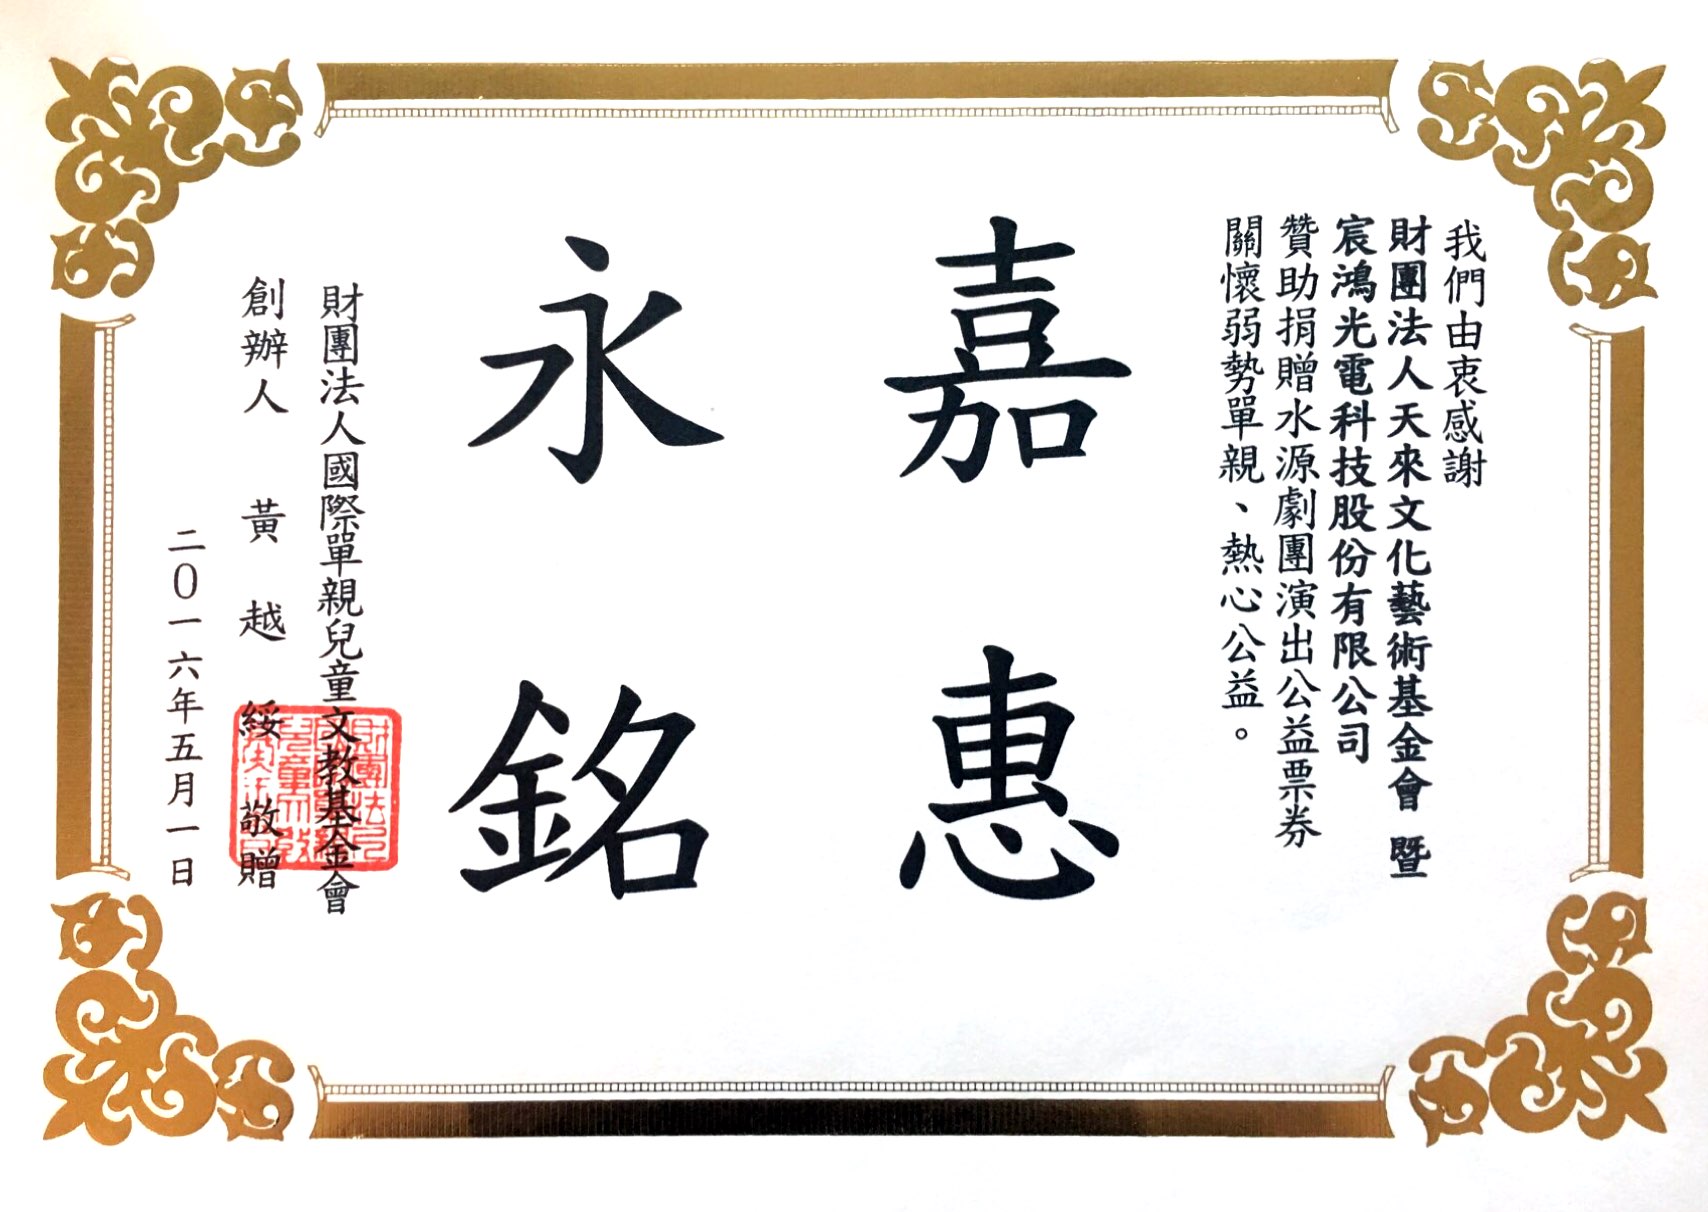 我們由衷感謝
財團法人天來文化藝術基金會 暨
宸鴻光電科技股份有限公司
贊助捐贈水源劇團演出公益票券
關懷弱勢單親、熱心公益。
嘉惠
永銘
財團法人國際單親兒童文教基金會
創辦人 黃越綏 敬贈
二0一六年五月一日